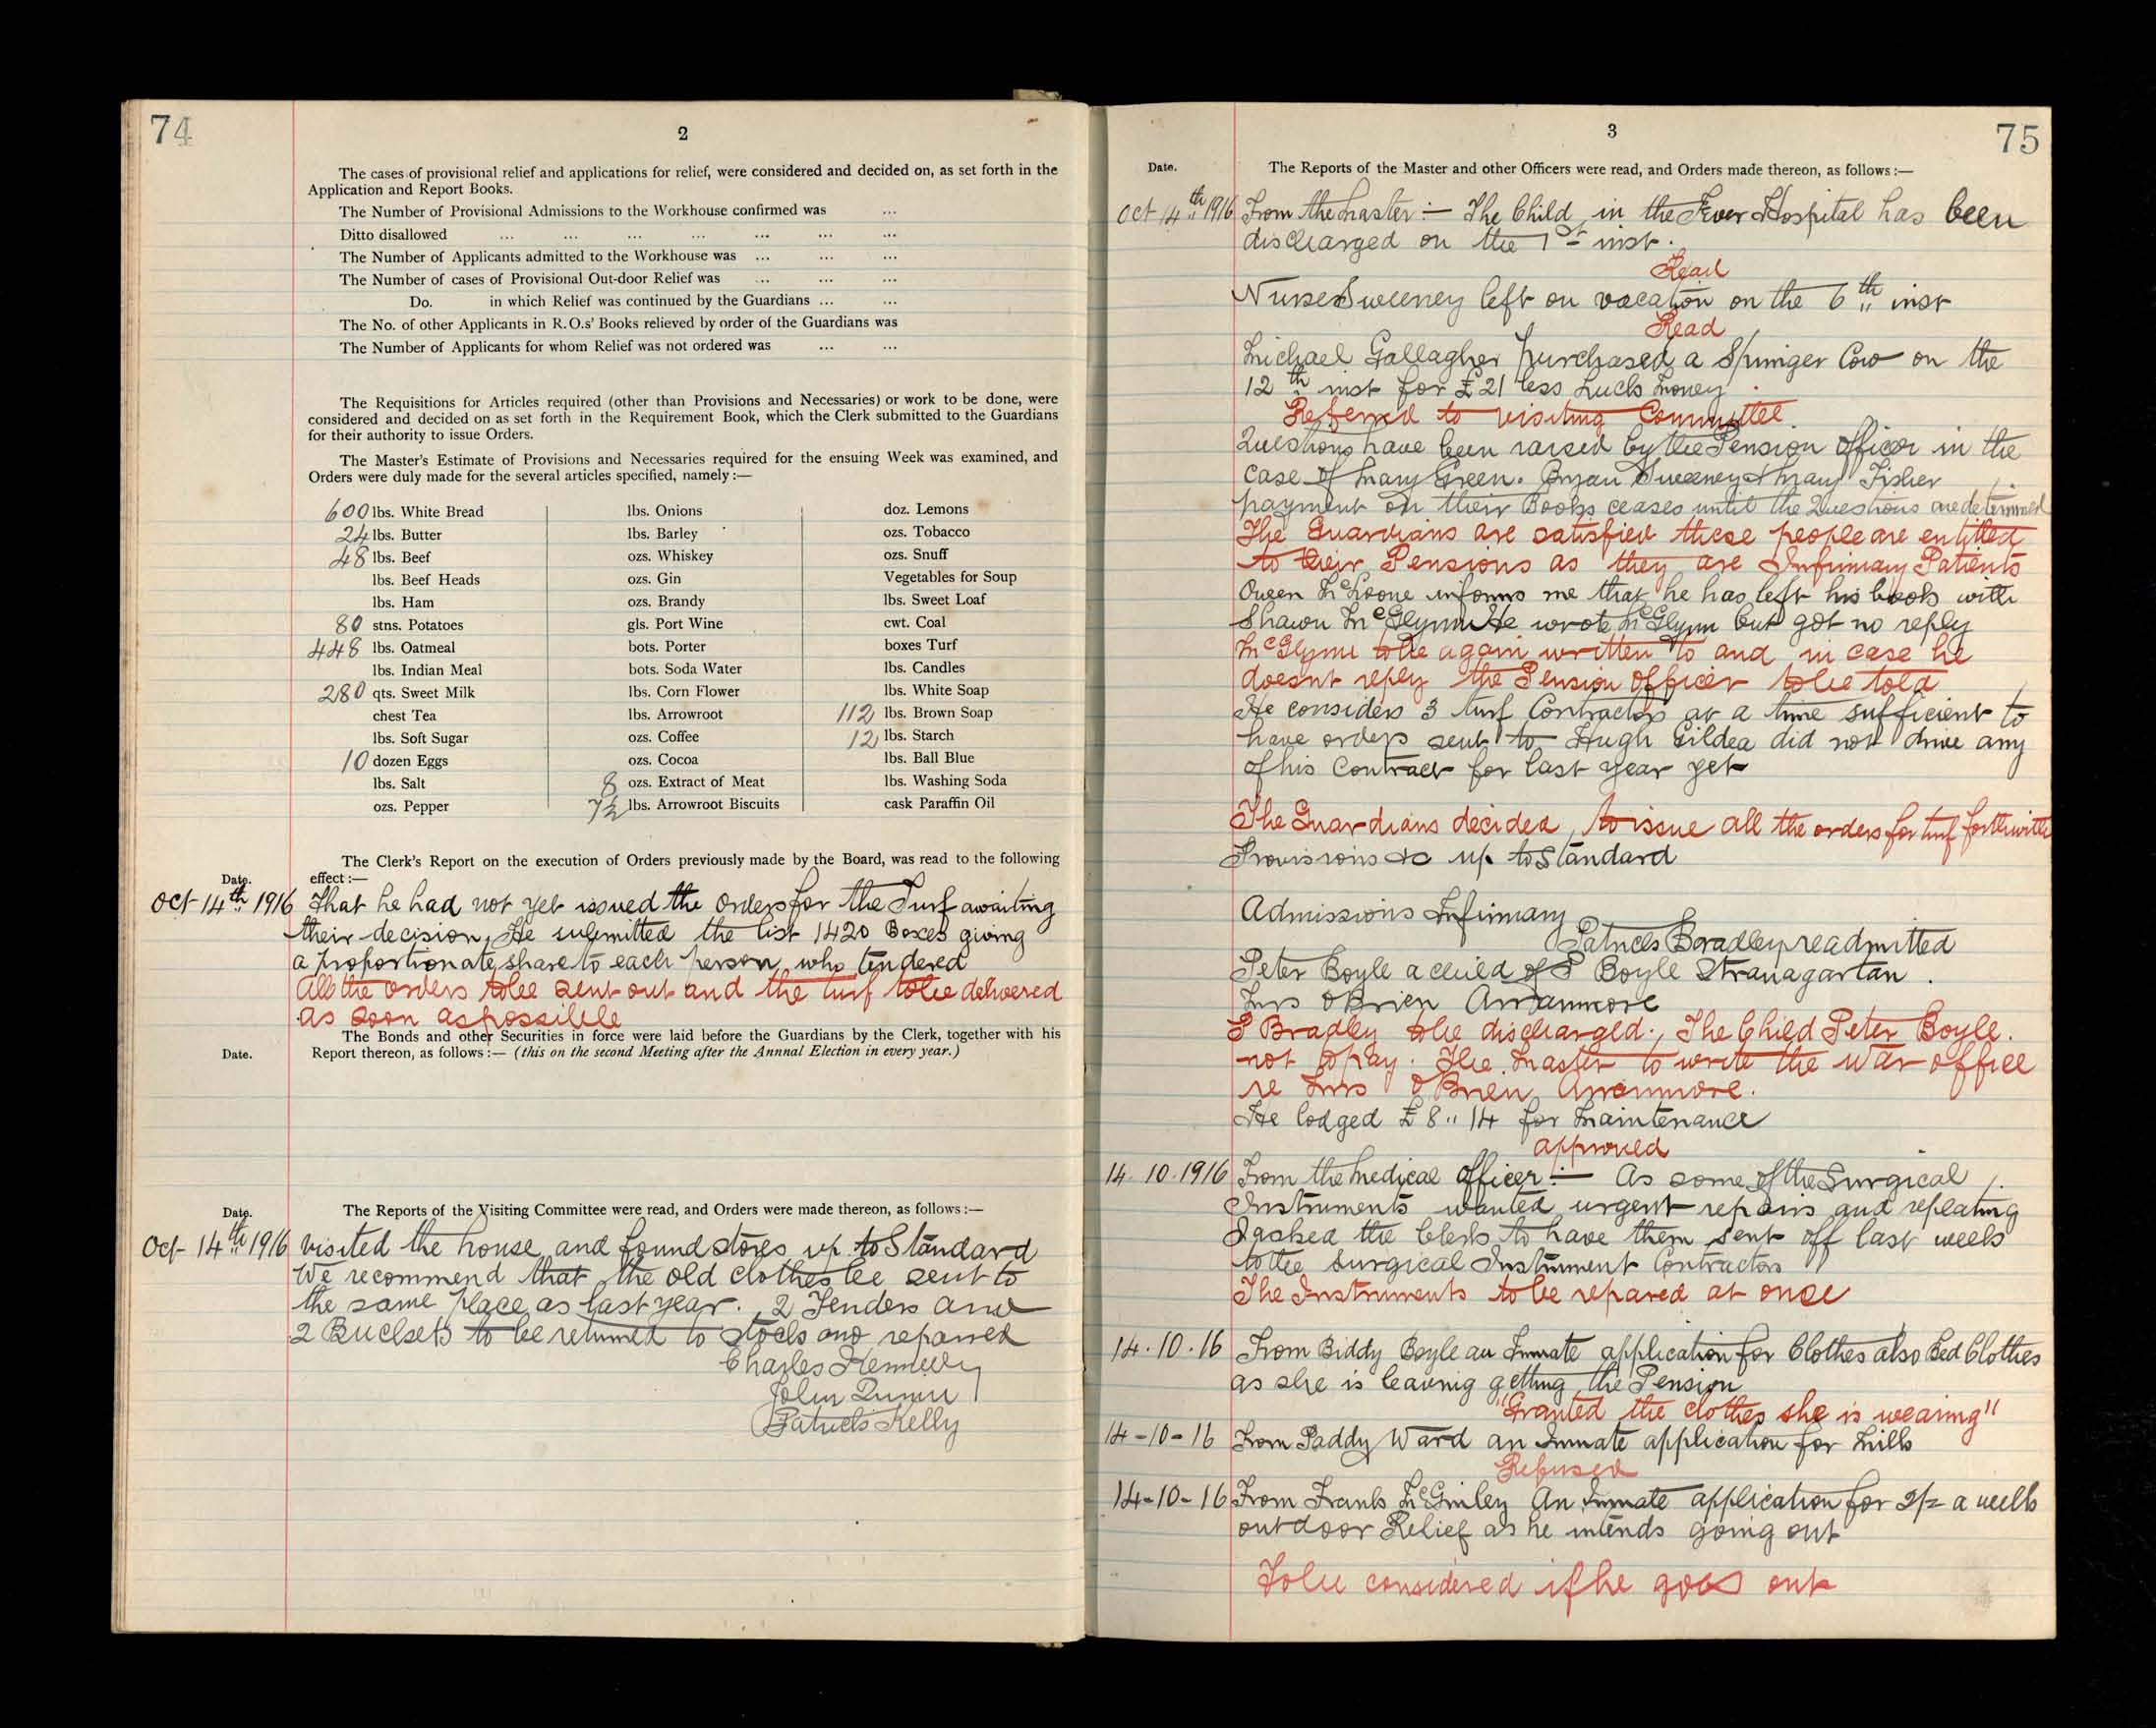 74
2
The cases of provisional relief and applications for relief, were considered and decided on, as set forth in the
Application and Report Books.
The Number of Provisional Admissions to the Workhouse confirmed was ...
Ditto disallowed ... ... ... ... ... ... ...
The Number of Applicants admitted to the Workhouse was ... ... ...
The Number of cases of Provisional Out-door Relief was ... ... ...
Do. in which Relief was continued by the Guardians ... ...
The No. of other Applicants in R.O.s' Books relieved by order of the Guardians was
The Number of Applicants for whom Relief was not ordered was ... ...
The Requisitions for Articles required (other than Provisions and Necessaries) or work to be done, were
considered and decided on as set forth in the Requirement Book, which the Clerk submitted to the Guardians
for their authority to issue Orders.
The Master's Estimate of Provisions and Necessaries required for the ensuing Week was examined, and
Orders were duly made for the several articles specified, namely :—
600 lbs. White Bread
24 lbs. Butter
48 lbs. Beef
lbs. Beef Heads
lbs. Ham
80 stns. Potatoes
448 lbs. Oatmeal
lbs. Indian Meal
280 qts. Sweet Milk
chest Tea
lbs. Soft Sugar
10 dozen Eggs
lbs. Salt
ozs. Pepper
lbs. Onions
lbs. Barley
ozs. Whiskey
ozs. Gin
ozs. Brandy
gls. Port Wine
bots. Porter
bots. Soda Water
lbs. Corn Flower
lbs. Arrowroot
ozs. Coffee
ozs. Cocoa
8 ozs. Extract of Meat
7½ lbs. Arrowroot Biscuits
doz. Lemons
ozs. Tobacco
ozs. Snuff
Vegetables for Soup
lbs. Sweet Loaf
cwt. Coal
boxes Turf
lbs. Candles
lbs. White Soap
112 lbs. Brown Soap
12 lbs. Starch
lbs. Ball Blue
lbs. Washing Soda
cask Paraffin Oil
The Clerk's Report on the execution of Orders previously made by the Board, was read to the following
Date. effect :—
Oct 14th 1916 That he had not yet issued the Orders for the Turf awaiting
their decision, He submitted the list 1420 Boxes giving
a proportionate share to each person who tendered
All the orders to be sent out and the turf to be delivered
as soon as possible
The Bonds and other Securities in force were laid before the Guardians by the Clerk, together with his
Date. Report thereon, as follows :— (this on the second Meeting after the Annnal Election in every year.)
Date. The Reports of the Visiting Committee were read, and Orders were made thereon, as follows :—
Oct 14th 1916 visited the house and found stores up to Standard
We recommend that the old clothes be sent to
the same place as last year. 2 Tenders and
2 Buckets to be returned to stock and repaired
Charles Kennedy
John Quinn
Patrick Kelly
3
75
Date. The Reports of the Master and other Officers were read, and Orders made thereon, as follows :—
Oct 14th 1916 From the Master :— The Child in the Fever Hospital has been
discharged on the 1st inst.
Read
Nurse Sweeney left on vacation on the 6th inst
Read
Michael Gallagher purchased a Springer Cow on the
12th inst for £21 less Luck Money
Referred to visiting Committee.
Questions have been raised by the Pension officer in the
case of Mary Green. Bryan Sweeney & Mary Fisher
payment on their Books ceases until the Questions are determined
The Guardians are satisfied these people are entitled
to their Pensions as they are Infirmary Patients
Owen McLoone informs me that he has left his book with
Shawn McGlynn He wrote McGlynn but got no reply
McGlynn to be again written to and in case he
doesnt reply the Pension officer to be told
He considers 3 turf Contractors at a time sufficient to
have orders sent to Hugh Gildea did not drive any
of his Contract for last year yet
The Guardians decided, to issue all the orders for turf forthwith
Provisions &c up to Standard
Admissions Infirmary
Patrick Boradley readmitted
Peter Boyle a child of P Boyle Stranagartan.
Mrs O'Brien Arranmore
P Bradley to be discharged, The Child Peter Boyle.
not to pay. The Master to write the War office
re Mrs O'Brien Arranmore.
He lodged £8 " 14 for Maintenance
approved
14.10.1916 From the Medical officer :— As some of the Surgical
Instruments wanted urgent repairs and replating
I asked the Clerk to have them sent off last week
to the Surgical Instrument Contractors
The Instruments to be repared at once
14.10.16 From Biddy Boyle an Inmate application for Clothes also Bed Clothes
as she is leaving getting the Pension
"Granted the clothes she is wearing"
14-10-16 From Paddy Ward an Inmate application for Milk
Refused
14-10-16 From Frank McGinley An Inmate application for 2/= a week
outdoor Relief as he intends going out
To be considered if he goes out